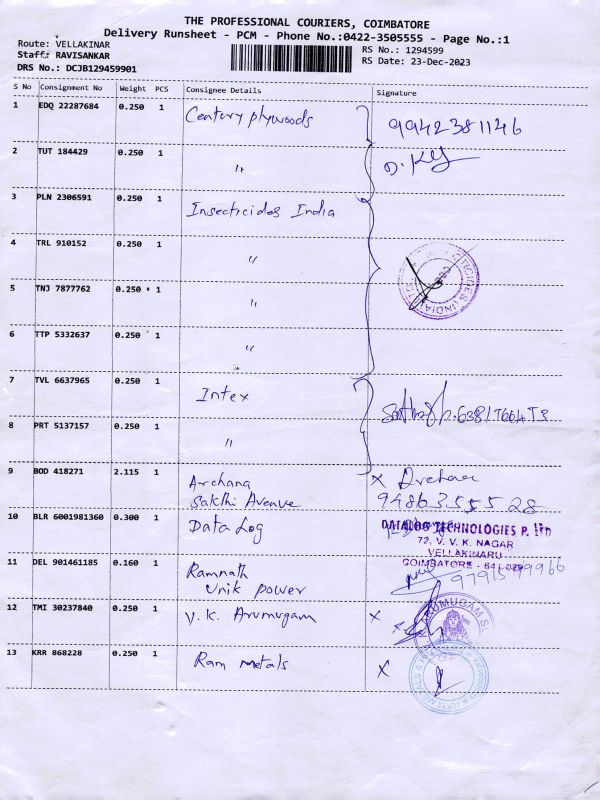 THE PROFESSIONAL COURIERS, COIMBATORE
Delivery Runsheet - PCM - Phone No.:0422-3505555 - Page No.:1
Route: VELLAKINAR
Staff: RAVISANKAR
DRS No.: DCJB129459901
RS No.: 1294599
RS Date: 23-Dec-2023
S No Consignment No Weight PCS Consignee Details Signature
1 EDQ 22287684 0.250 1 Century plywoods 9942381146
2 TUT 184429 0.250 1 "
3 PLN 2306591 0.250 1 Insecticides India
4 TRL 910152 0.250 1 "
5 TNJ 7877762 0.250 1 "
6 TTP 5332637 0.250 1 "
7 TVL 6637965 0.250 1 Intex
8 PRT 5137157 0.250 1 "
9 BOD 418271 2.115 1 Archana x Archana
Sakthi Avenue 9486355528
10 BLR 6001981360 0.300 1 Data Log
DATALOG TECHNOLOGIES P. LTD
72, V. V. K. NAGAR
VELLAKINARU
COIMBATORE - 641 029
11 DEL 901461185 0.160 1 Ramnath
Unik power
12 TMI 30237840 0.250 1 V.K. Arumugam x
13 KRR 868228 0.250 1 Ram metals x